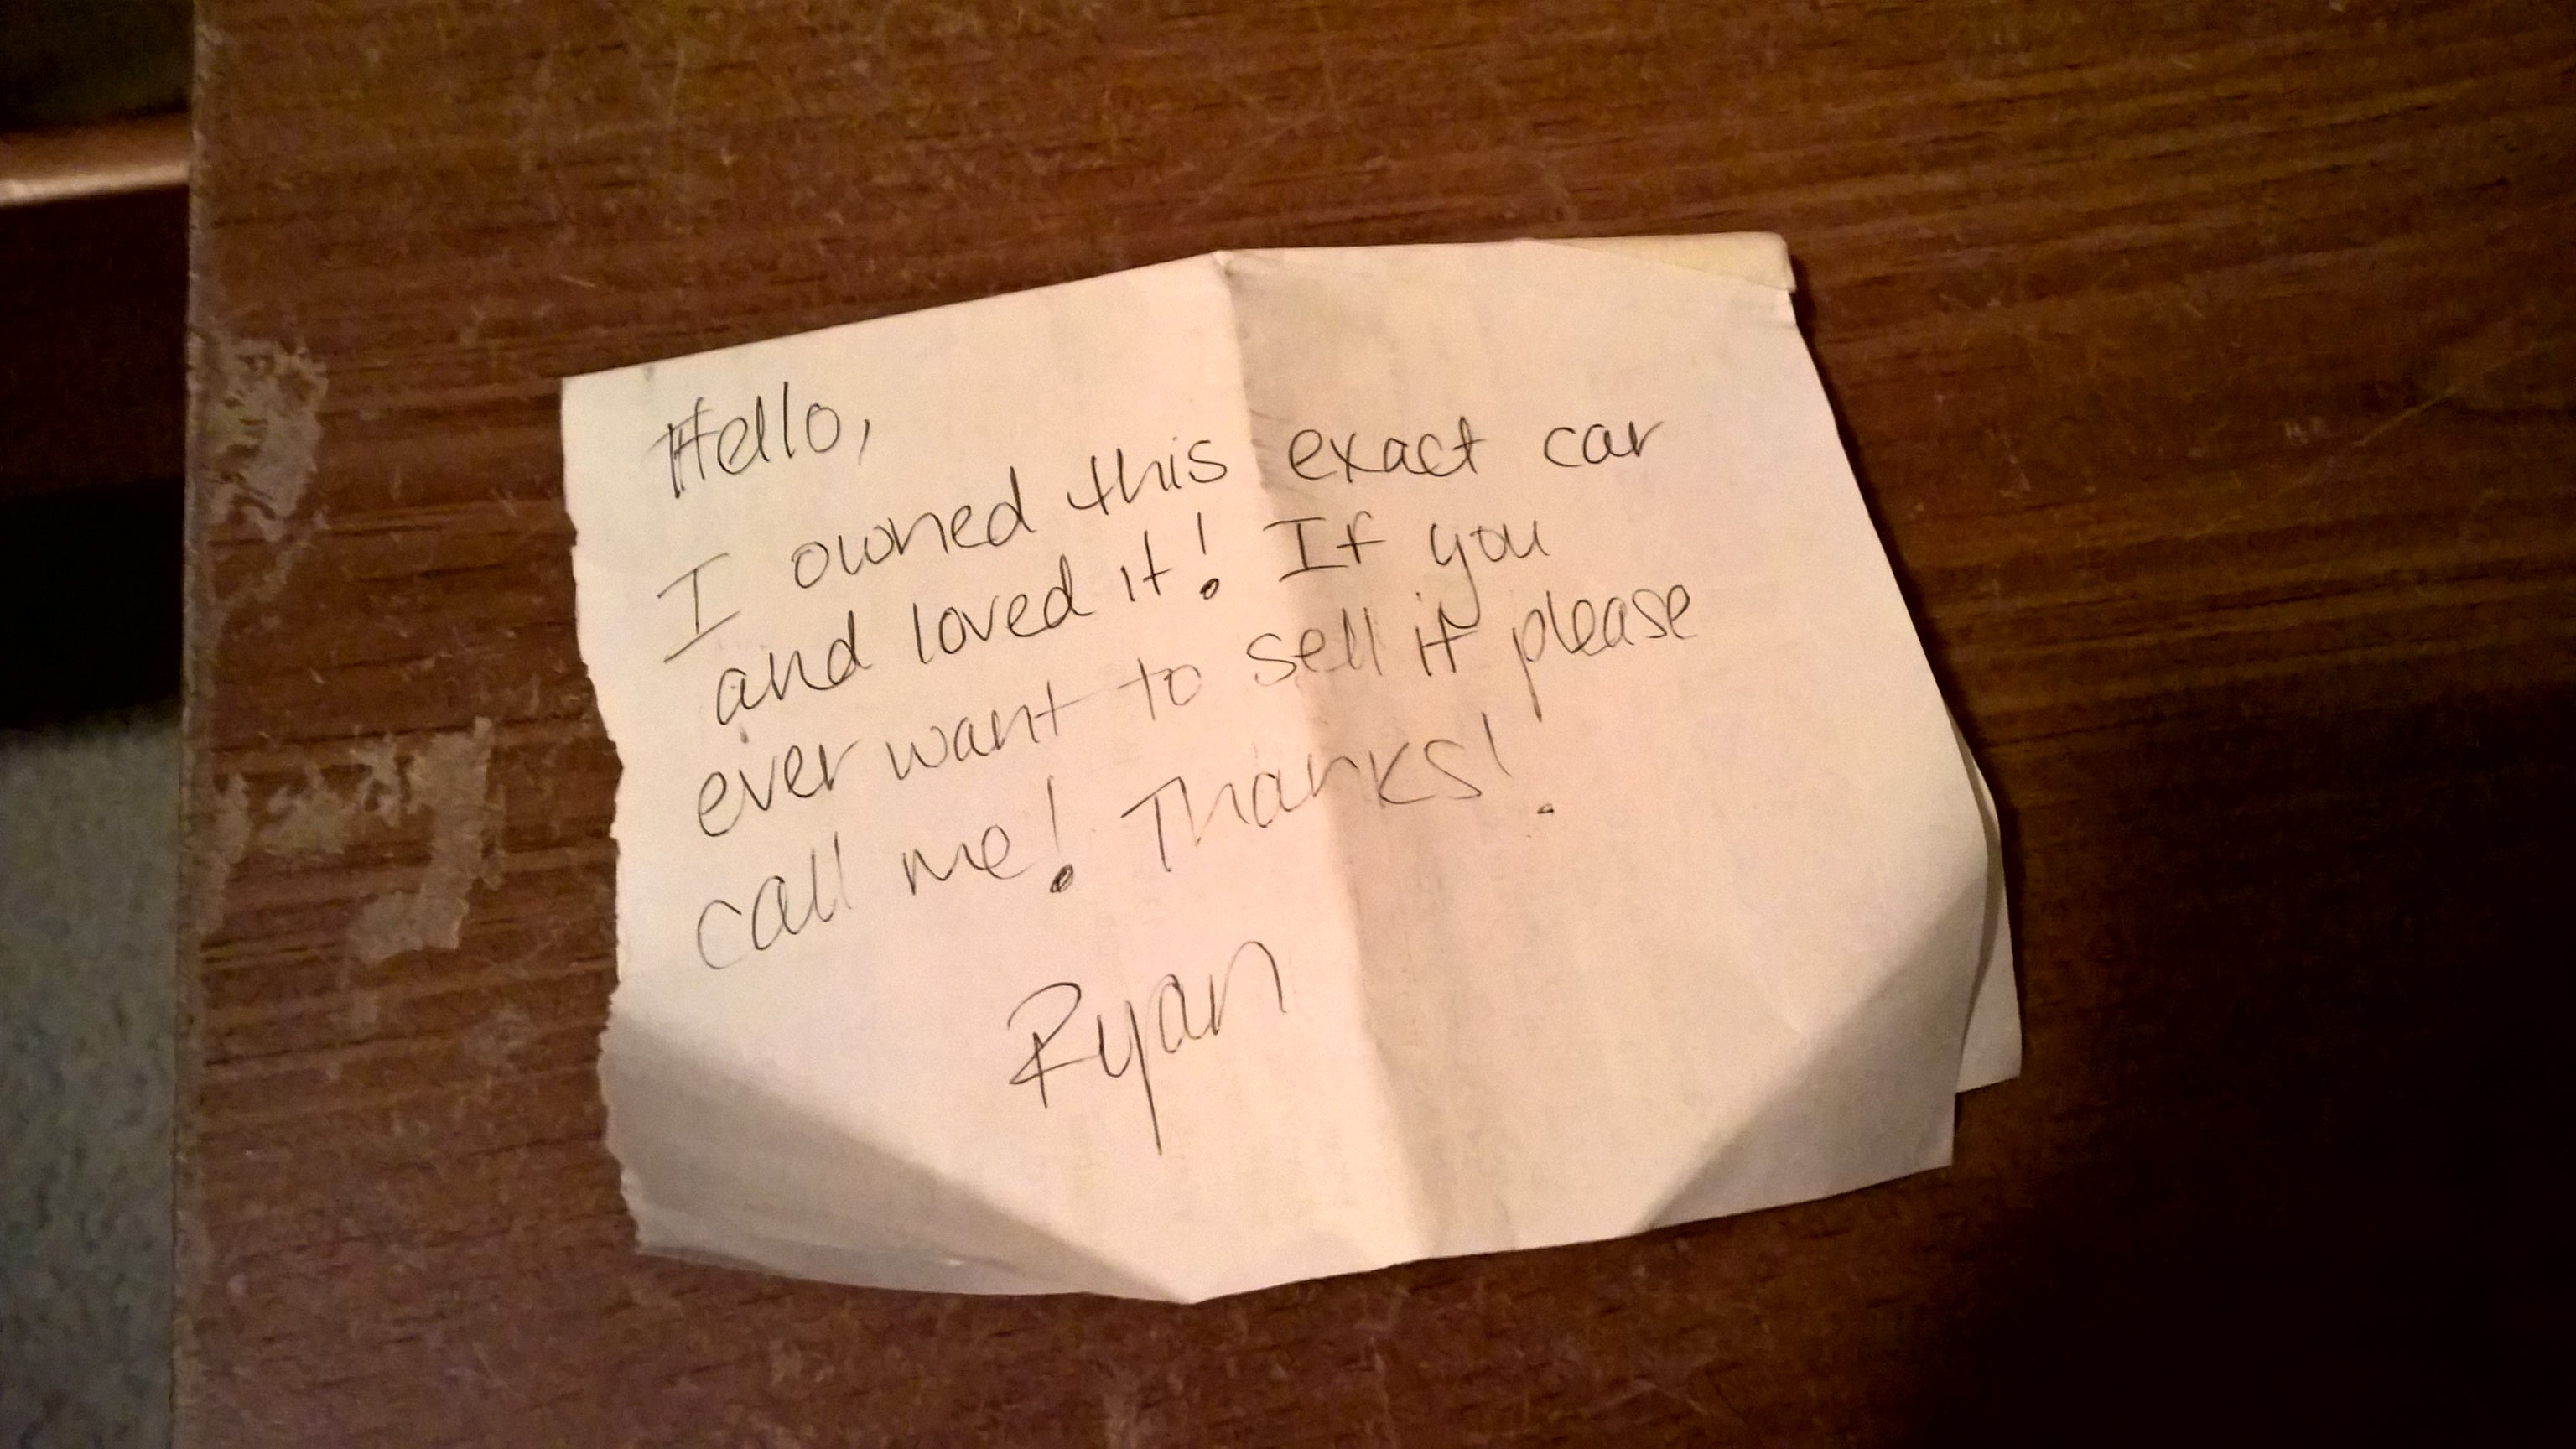 Hello,
I owned this exact car
and loved it! If you
ever want to sell it please
call me! Thanks!
Ryan